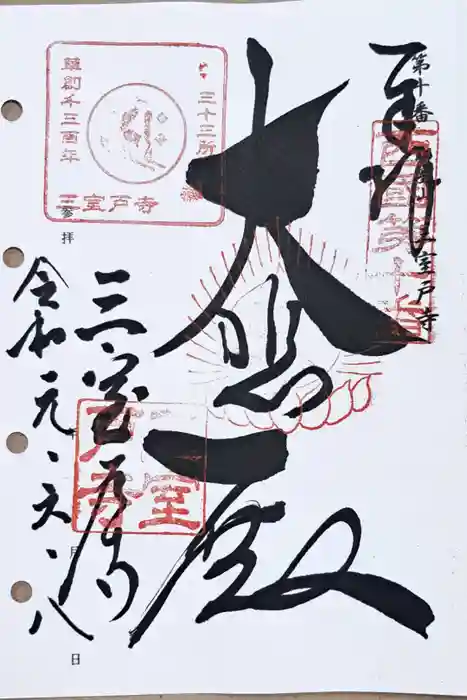 奉拝
第十番
三室戸寺
西国第十番
大悲殿
三十三所
草創千三百年
三室戸寺
拝
三室戸寺
令和元、六、八
月
日